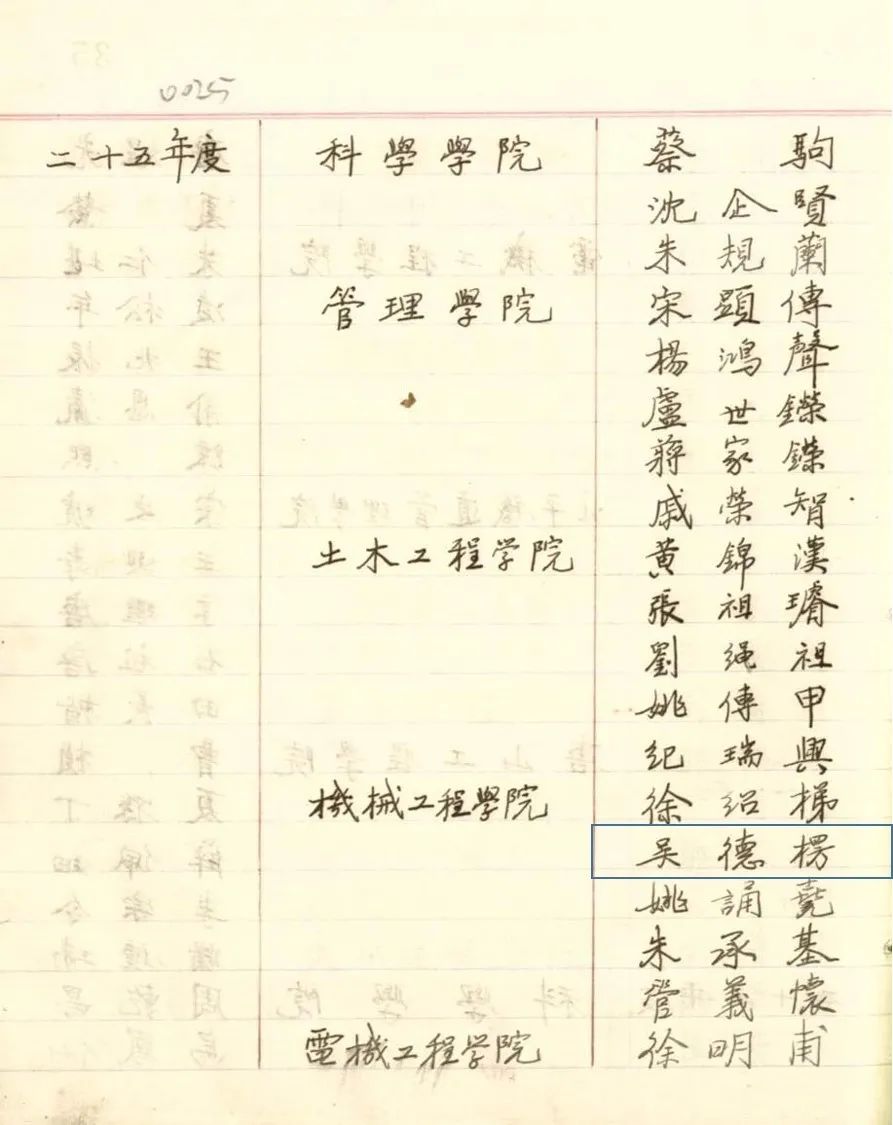 0025
二十五年度 科學學院 蔡駒
沈企賢
朱規蘭
管理學院 宋顕傳
楊鴻聲
盧世鑅
蔣家鑅
戚榮智
土木工程学院 黄錦漢
張祖璿
劉绳祖
姚傳甲
紀瑞興
機械工程学院 徐紹梯
吴德楞
姚誦堯
朱承基
管義懷
電機工程学院 徐明甫